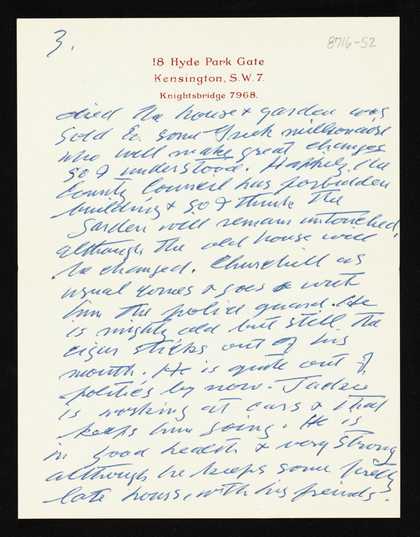 3.
8716-52
18 Hyde Park Gate
Kensington, S.W. 7.
Knightsbridge 7968.
died the house & garden was
sold to some Greek millionaire
who will make great changes
so I understood. Happily, the
County Council has forbidden
building & so I think the
garden will remain untouched,
although the old house will
be changed. Churchill as
usual comes & goes with
him the police guard. He
is mighty old but still the
cigar sticks out of his
mouth. He is quite out of
politics by now. Jackie
is working at cars & that
keeps him going. He is
in good health & very strong
although he keeps some pretty
late hours, with his friends.